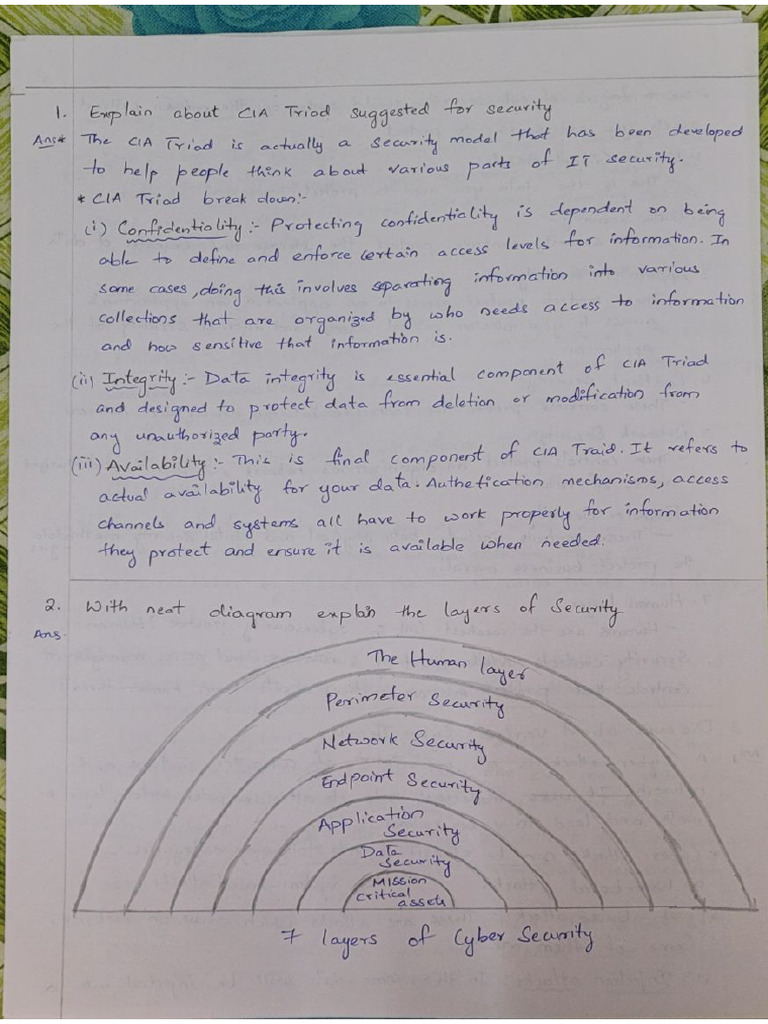 1. Explain about CIA Triad suggested for security
Ans* The CIA Triad is actually a security model that has been developed
to help people think about various parts of IT security.
* CIA Triad break down:-
(i) Confidentiality :- Protecting confidentiality is dependent on being
able to define and enforce certain access levels for information. In
some cases, doing this involves separating information into various
collections that are organized by who needs access to information
and how sensitive that information is.
(ii) Integrity :- Data integrity is essential component of CIA Triad
and designed to protect data from deletion or modification from
any unauthorized party.
(iii) Availability :- This is final component of CIA Traid. It refers to
actual availability for your data. Authetication mechanisms, access
channels and systems all have to work properly for information
they protect and ensure it is available when needed.
2. With neat diagram explain the layers of Security
Ans.
The Human layer
Perimeter Security
Network Security
Endpoint Security
Application
Security
Data
Security
Mission
critical
assets
7 layers of Cyber Security